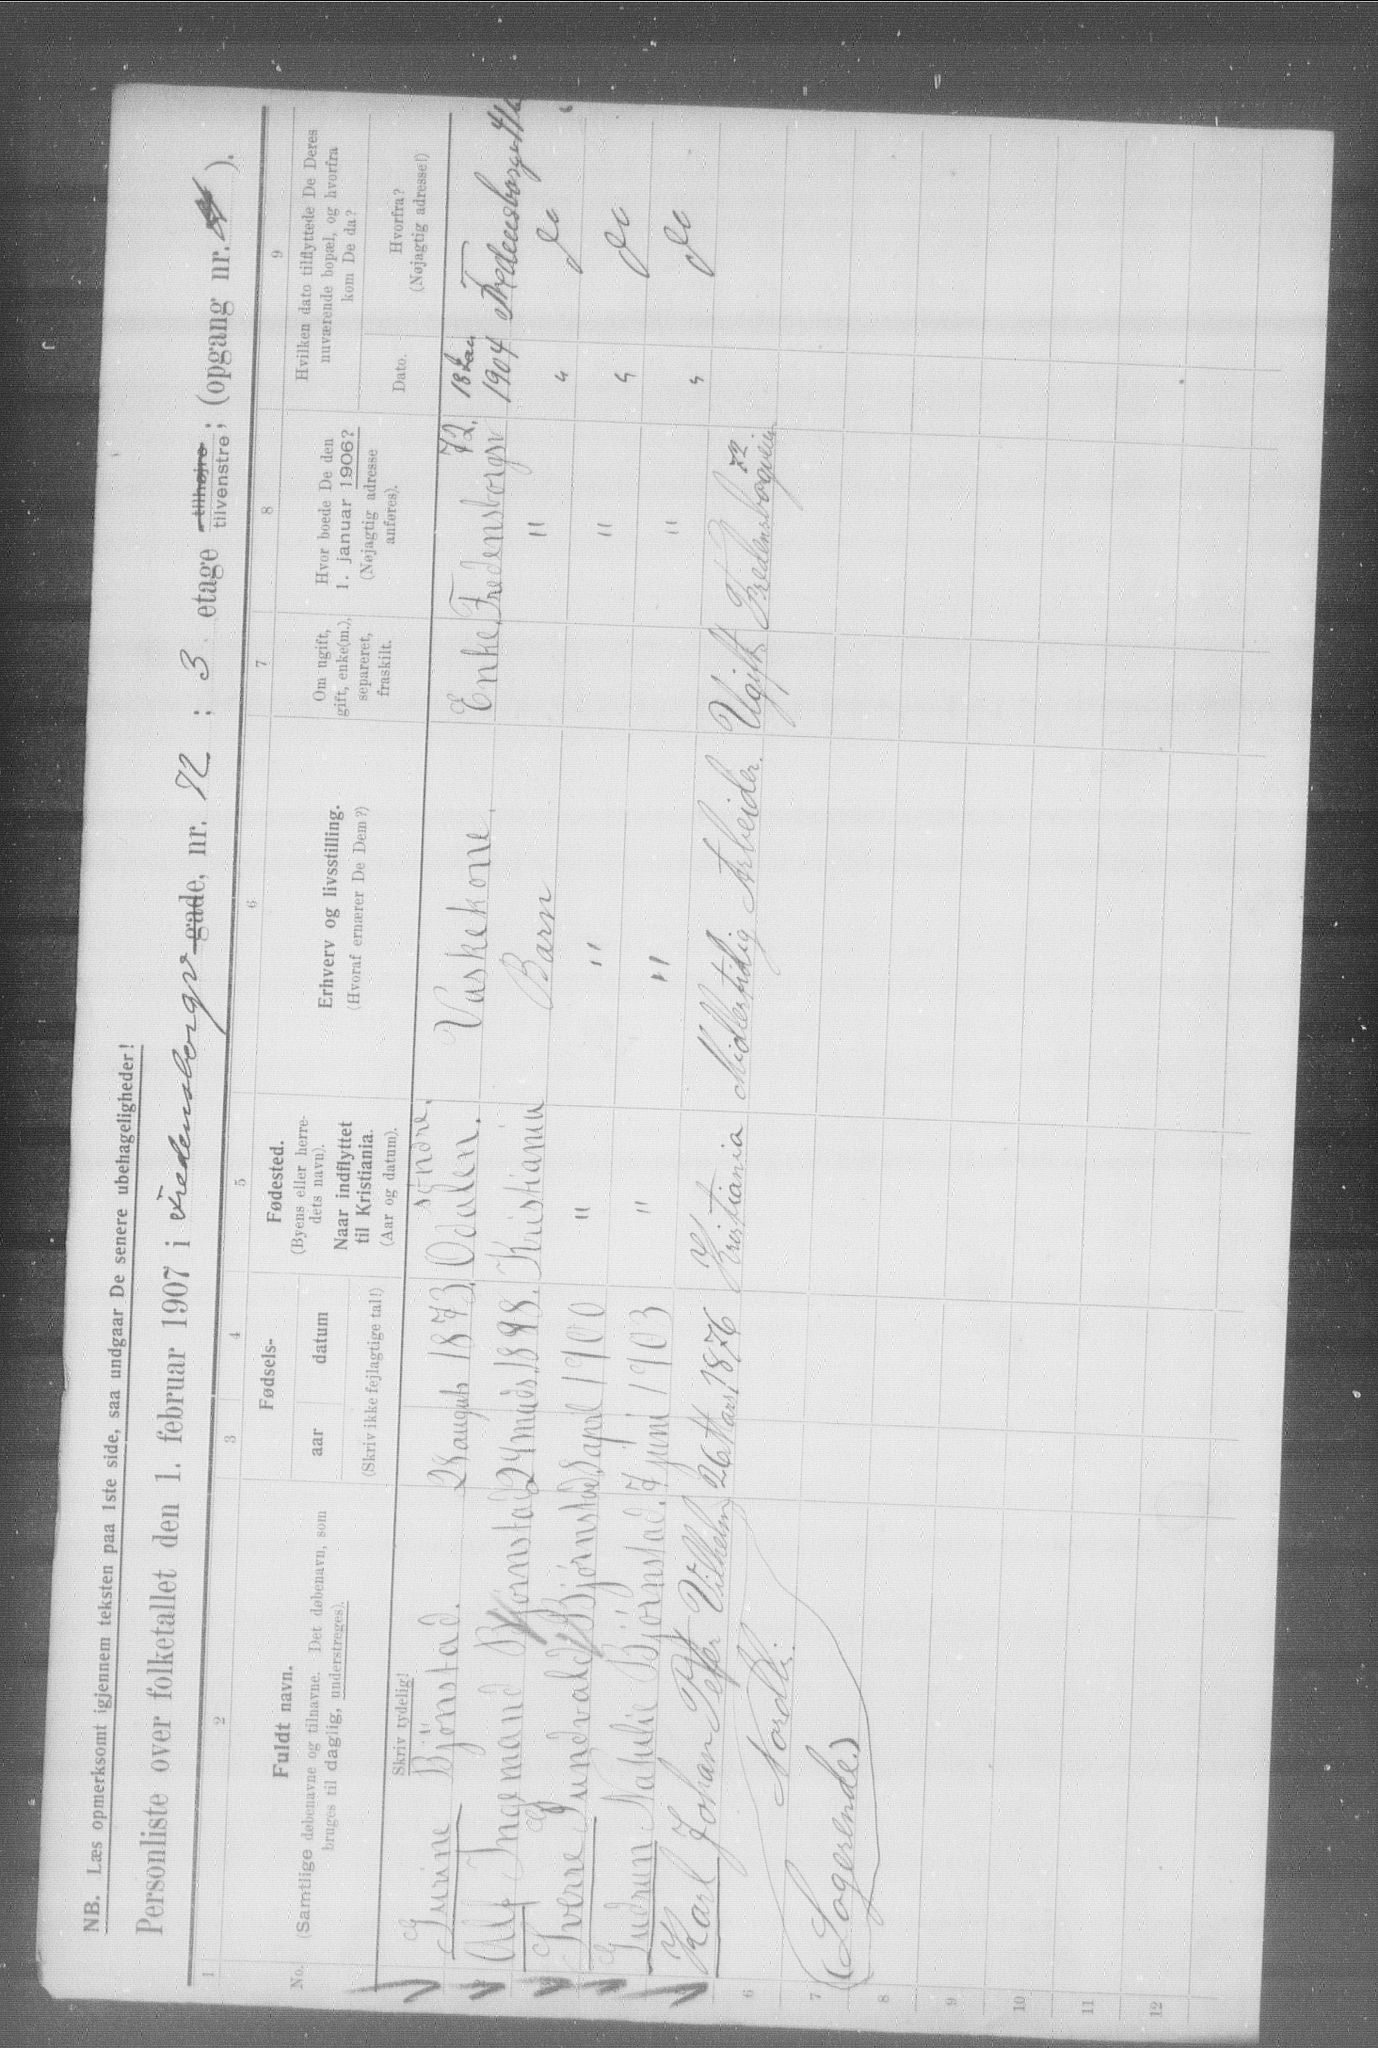 NB. Læs opmerksomt igjennem teksten paa 1ste side, saa undgaar De senere ubehageligheder!
Personliste over folketallet den 1. februar 1907 i Fredensborgv gade, nr. 72 ; 3 etage tilhøjre tilvenstre; (opgang nr. ).
1 2 3 4 5 6 7 8 9
No.
Fuldt navn.
(Samtlige døbenavne og tilnavne. Det døbenavn, som
bruges til daglig, understreges).
Skriv tydelig!
Fødsels-
aar datum
(Skriv ikke fejlagtige tal!)
Fødested.
(Byens eller herre-
dets navn).
Naar indflyttet
til Kristiania.
(Aar og datum).
Erhverv og livsstilling.
(Hvoraf ernærer De Dem?)
Om ugift,
gift, enke(m.),
separeret,
fraskilt.
Hvor boede De den
1. januar 1906?
(Nøjagtig adresse
anføres).
Hvilken dato tilflyttede De Deres
nuværende bopæl, og hvorfra
kom De da?
Dato.
Hvorfra?
(Nøjagtig adresse!)
Gurine Bjönstad. 28 august 1873. Søndre. Odalen. Vaskekone. Enke. Fredensborgv 72. 18 1904 Fredensborgv
Alf Ingemand Bjørnstad 24 1898. Kristiania Barn " " do
Sverre Gundvald Bjørnstad 3 april 1900 " " " " do
Gudrun Natalie Bjørnstad. 7 juni 1903 " " " " do
Karl Johan Peter Vilhelm 26 Mars 1876 Kristiania Midlertidig Arbeider. Ugift Fredensborgveien 72
Nordli.
6
7 (Logerende.)
8
9
10
11
12